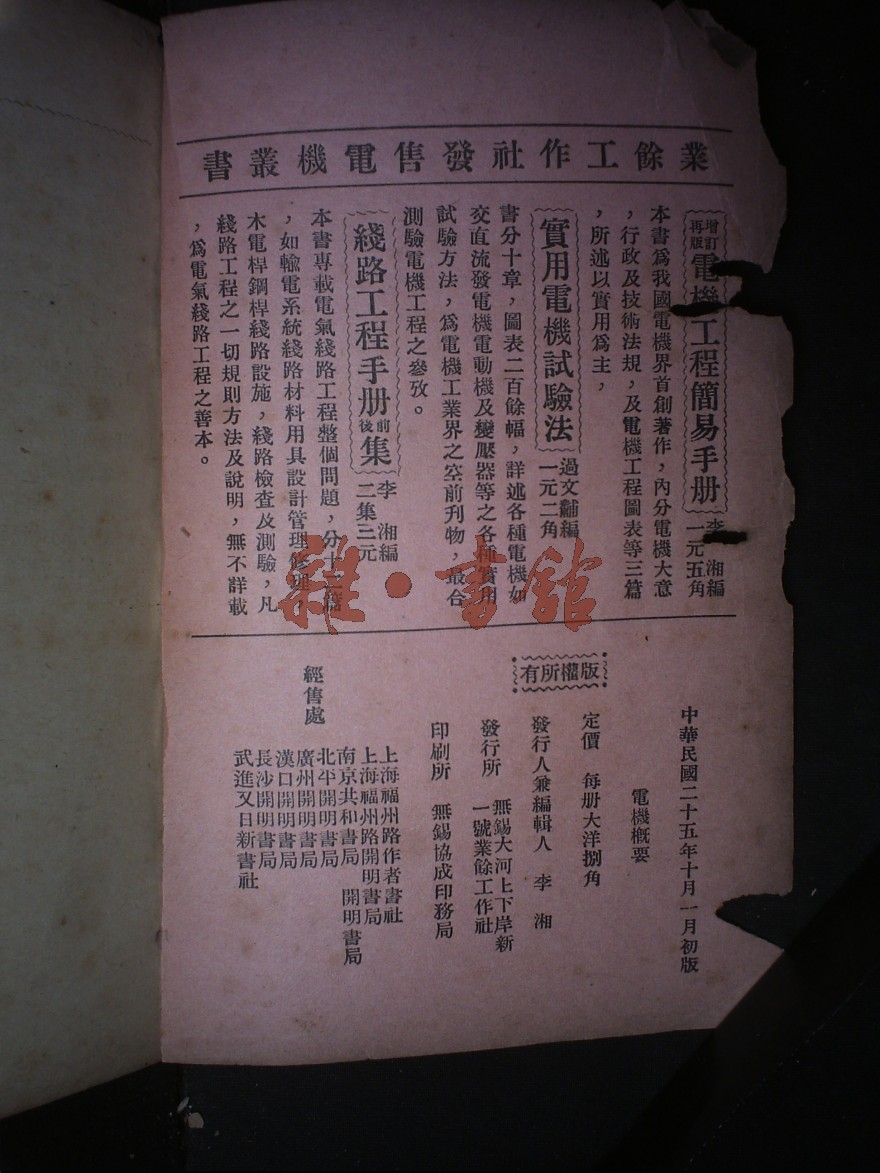 業餘工作社發售電機叢書
增訂再版 電機工程簡易手册 李湘編 一元五角
本書爲我國電機界首創著作，內分電機大意
，行政及技術法規，及電機工程圖表等三篇
，所述以實用爲主，
實用電機試驗法 過文黼編 一元二角
書分十章，圖表二百餘幅，詳述各種電機如
交直流發電機電動機及變壓器等之各種實用
試驗方法，爲電機工業界之空前刊物，最合
測驗電機工程之參攷。
綫路工程手册 前後集 李湘編 二集三元
本書專載電氣綫路工程整個問題，分十二篇
，如輸電系統綫路材料用具設計管理修理，
木電桿鋼桿綫路設施，綫路檢查及測驗，凡
綫路工程之一切規則方法及說明，無不詳載
，爲電氣綫路工程之善本。
版權所有
中華民國二十五年十月一月初版
電機概要
定價 每册大洋捌角
發行人兼編輯人 李湘
發行所 無錫大河上下岸新
一號業餘工作社
印刷所 無錫協成印務局
經售處
上海福州路作者書社
上海福州路開明書局
南京共和書局 開明書局
北平開明書局
廣州開明書局
漢口開明書局
長沙開明書局
武進又日新書社
雜·書館